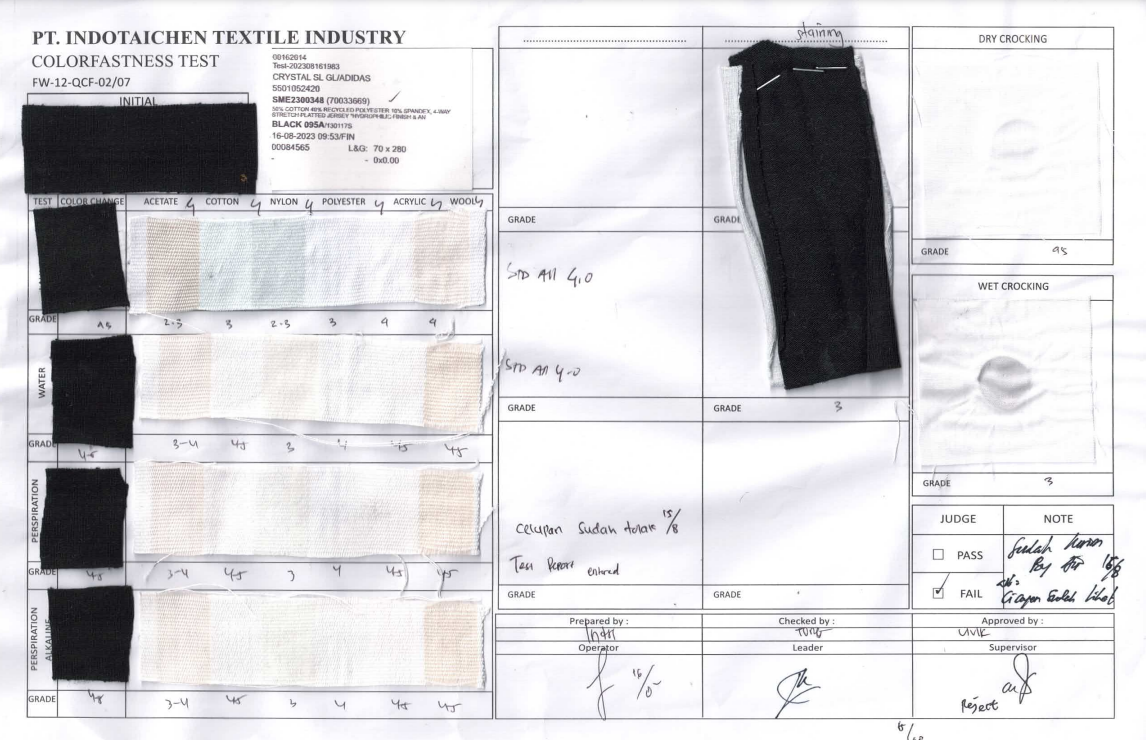 PT. INDOTAICHEN TEXTILE INDUSTRY
COLORFASTNESS TEST
FW-12-QCF-02/07
INITIAL
00162014
Test-202308161983
CRYSTAL SL GL/ADIDAS
5501052420
SME2300348 (70033669)
50% COTTON 40% RECYCLED POLYESTER 10% SPANDEX, 4-WAY
STRETCH PLATTED JERSEY *HYDROPHILIC FINISH & AN
BLACK 095A/1301175
16-08-2023 09:53/FIN
00084565 L&G: 70 x 280
- - 0x0.00
TEST COLOR CHANGE ACETATE 4 COTTON 4 NYLON 4 POLYESTER 4 ACRYLIC 4 WOOL 4
GRADE 45 2-3 3 2-3 3 4 4
WATER
GRADE 45 3-4 45 3 4 45 45
PERSPIRATION
GRADE 45 3-4 45 3 4 45 45
PERSPIRATION
ALKALINE
GRADE 45 3-4 45 3 4 45 45
staining
GRADE GRADE
STD All 4.0
STD All 4-0
GRADE GRADE 3
Celupan Sudah 15/8
Test Report entered
GRADE GRADE
DRY CROCKING
GRADE 45
WET CROCKING
GRADE 3
JUDGE NOTE
PASS
FAIL
Sudah
15/8
Sudah lihat
Prepared by : Checked by : Approved by :
Operator Leader Supervisor
Reject